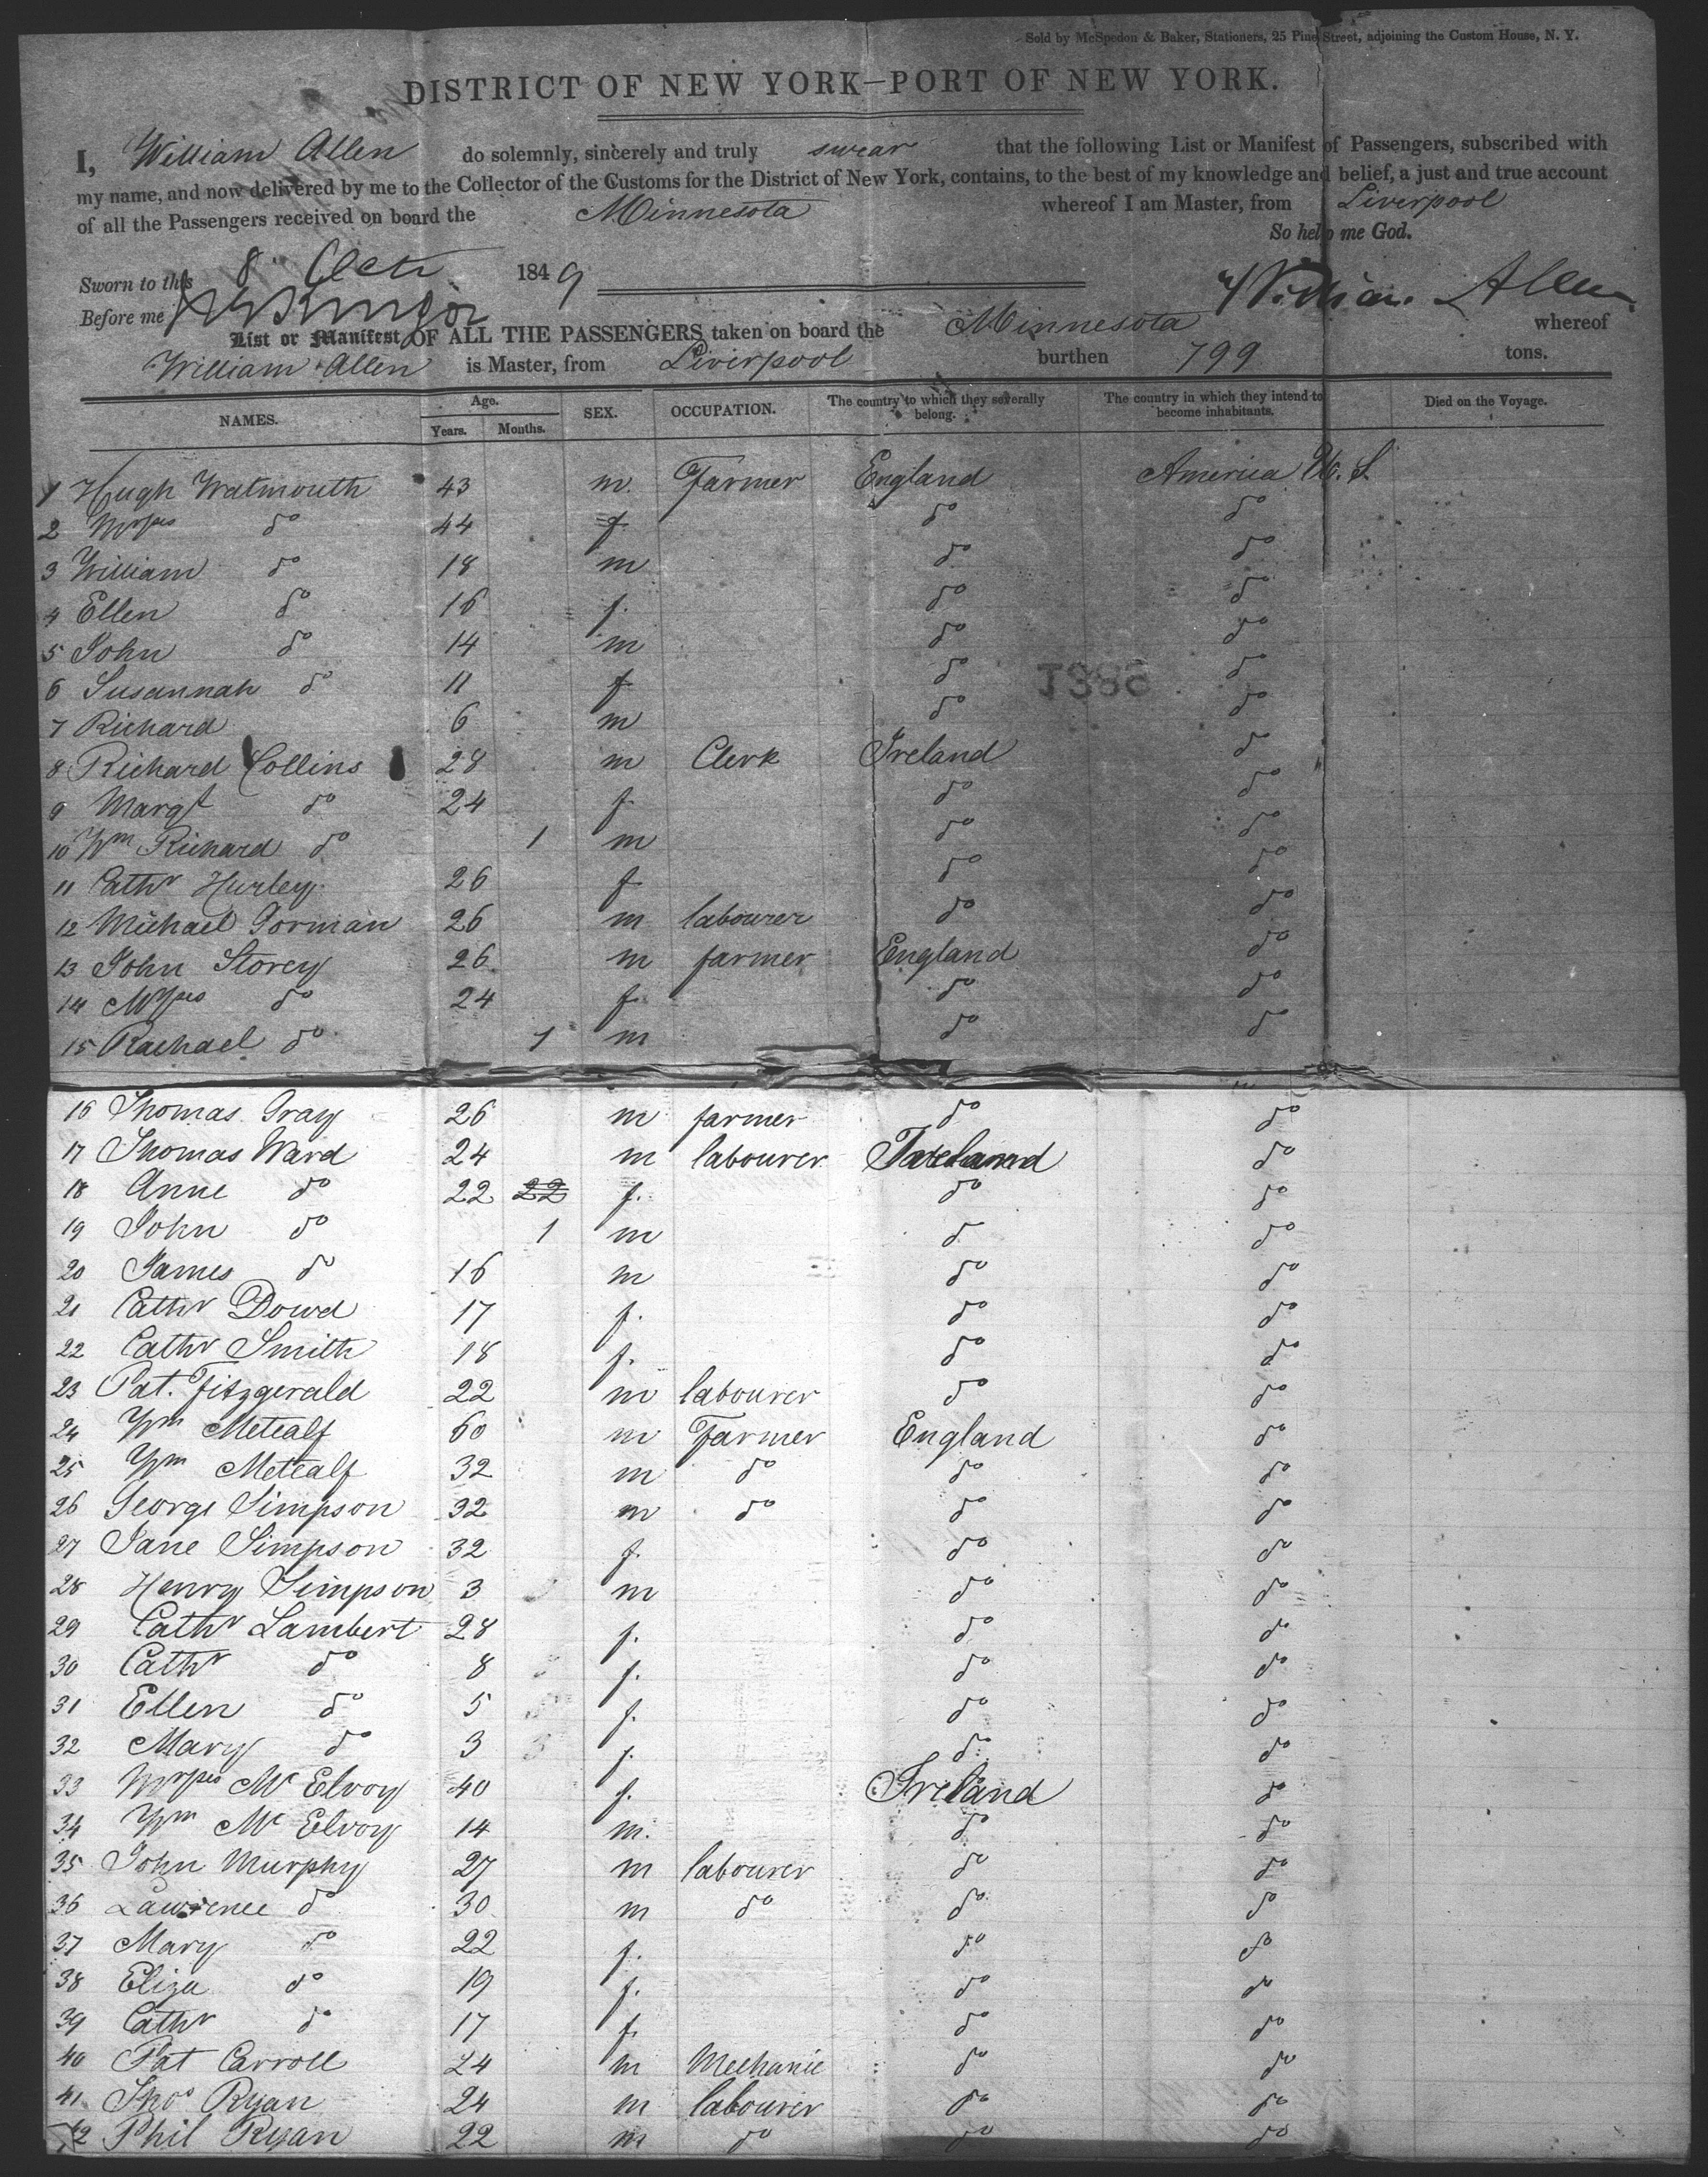 Sold by McSpedon & Baker, Stationers, 25 Pine Street, adjoining the Custom House, N. Y.
DISTRICT OF NEW YORK—PORT OF NEW YORK.
I, William Allen do solemnly, sincerely and truly swear that the following List or Manifest of Passengers, subscribed with
my name, and now delivered by me to the Collector of the Customs for the District of New York, contains, to the best of my knowledge and belief, a just and true account
of all the Passengers received on board the Minnesota whereof I am Master, from Liverpool
So help me God.
Sworn to this 8 Oct 1849
William Allen
Before me
List or Manifest OF ALL THE PASSENGERS taken on board the Minnesota whereof
William Allen is Master, from Liverpool burthen 799 tons.
NAMES. Age. Years. Months. SEX. OCCUPATION. The country to which they severally belong. The country in which they intend to become inhabitants. Died on the Voyage.
1 Hugh Watmouth 43 m. Farmer England America U. S.
2 do 44 f. do do
3 William do 18 m do do
4 Ellen do 16 f. do do
5 John do 14 m do do
6 Susannah do 11 f do do
7 Richard 6 m do do
8 Richard Collins 28 m Clerk Ireland do
9 Margt do 24 f. do do
10 Wm Richard do 1 m do do
11 Cathr Hurley 26 f do do
12 Michael Gorman 26 m labourer do do
13 John Storey 26 m farmer England do
14 do 24 f do do
15 Rachael do 1 m do do
16 Thomas Gray 26 m farmer do do
17 Thomas Ward 24 m labourer Ireland do
18 Anne do 22 22 f. do do
19 John do 1 m do do
20 James do 16 m do do
21 Cathr Dowd 17 f. do do
22 Cathr Smith 18 f. do do
23 Pat. Fitzgerald 22 m labourer do do
24 Wm Metcalf 60 m Farmer England do
25 Wm Metcalf 32 m do do do
26 George Simpson 32 m do do do
27 Jane Simpson 32 f. do do
28 Henry Simpson 3 m do do
29 Cathr Lambert 28 f. do do
30 Cathr do 8 f. do do
31 Ellen do 5 f. do do
32 Mary do 3 f. do do
33 Mc Elvoy 40 f. Ireland do
34 Wm Mc Elvoy 14 m. do do
35 John Murphy 27 m labourer do do
36 Lawrence do 30 m do do do
37 Mary do 22 f. do do
38 Eliza do 19 f. do do
39 Cathr do 17 f. do do
40 Pat Carroll 24 m Mechanic do do
41 Thos Ryan 24 m labourer do do
42 Phil Ryan 22 m do do do